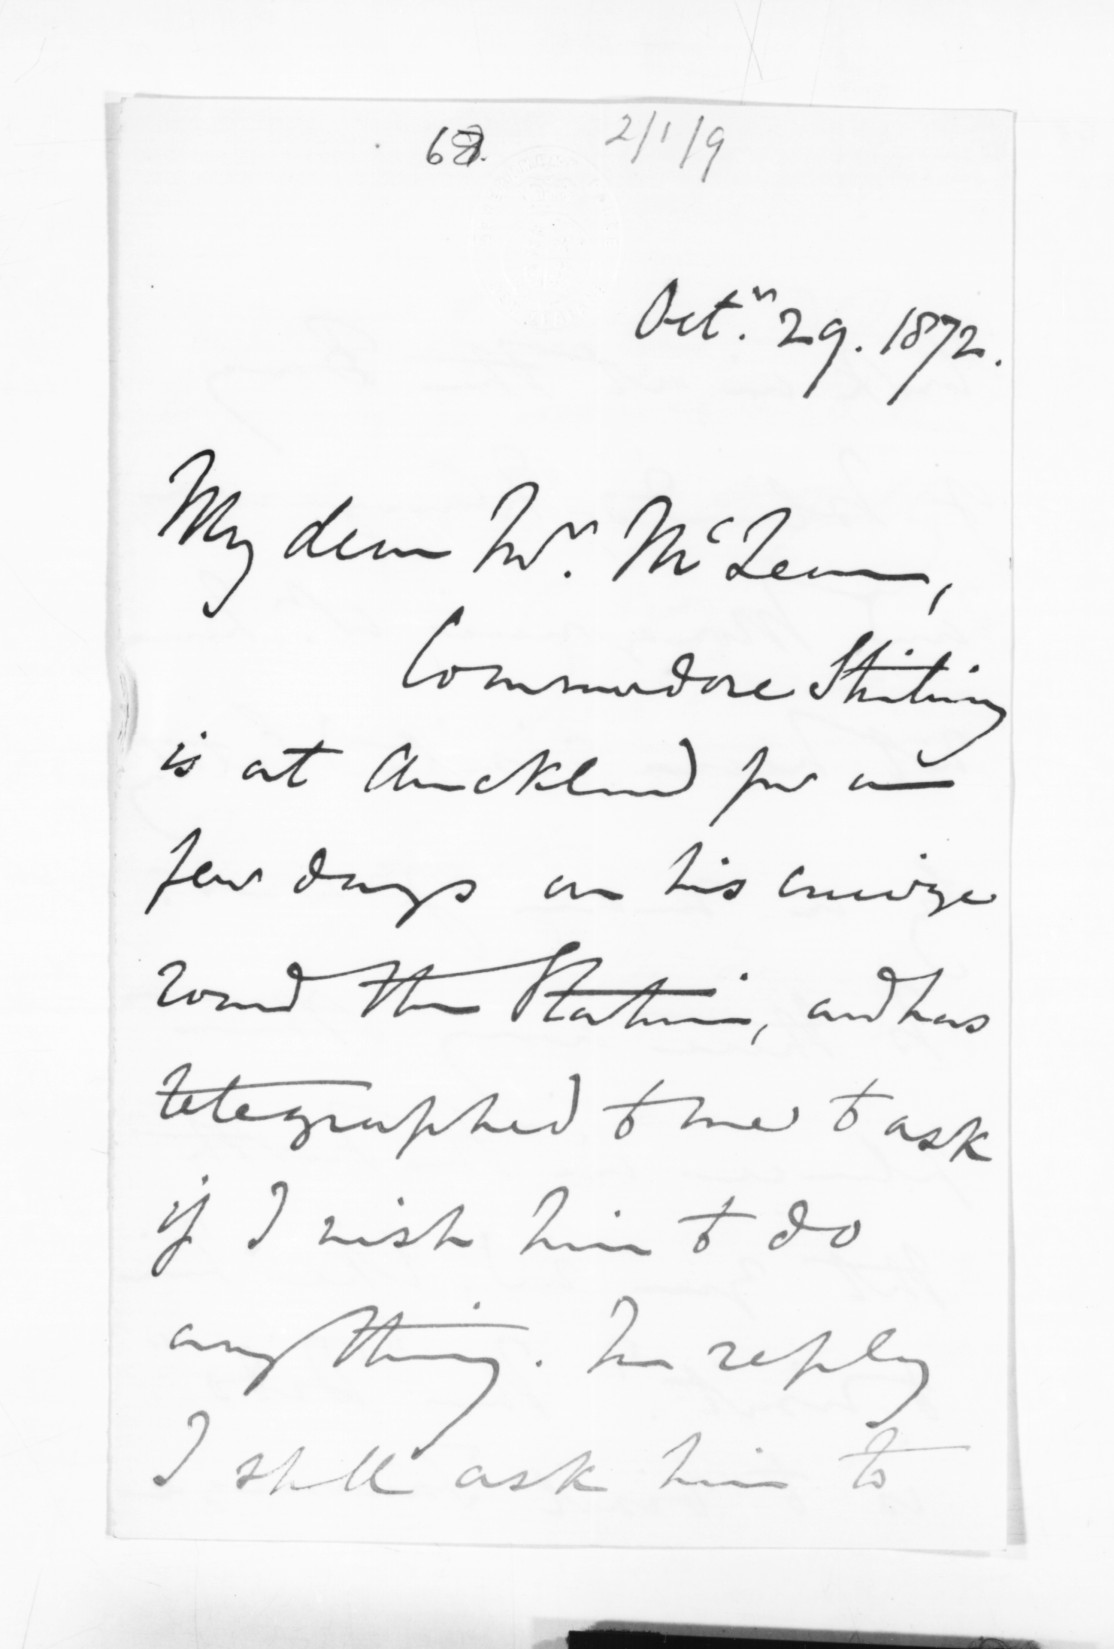 68. 2/1/9
Octr. 29. 1872.
My dear Mr. McLean,
Commodore Stirling
is at Auckland for a
few days on his cruize
round the Station, and has
telegraphed to me to ask
if I wish him to do
anything. In reply
I shall ask him to